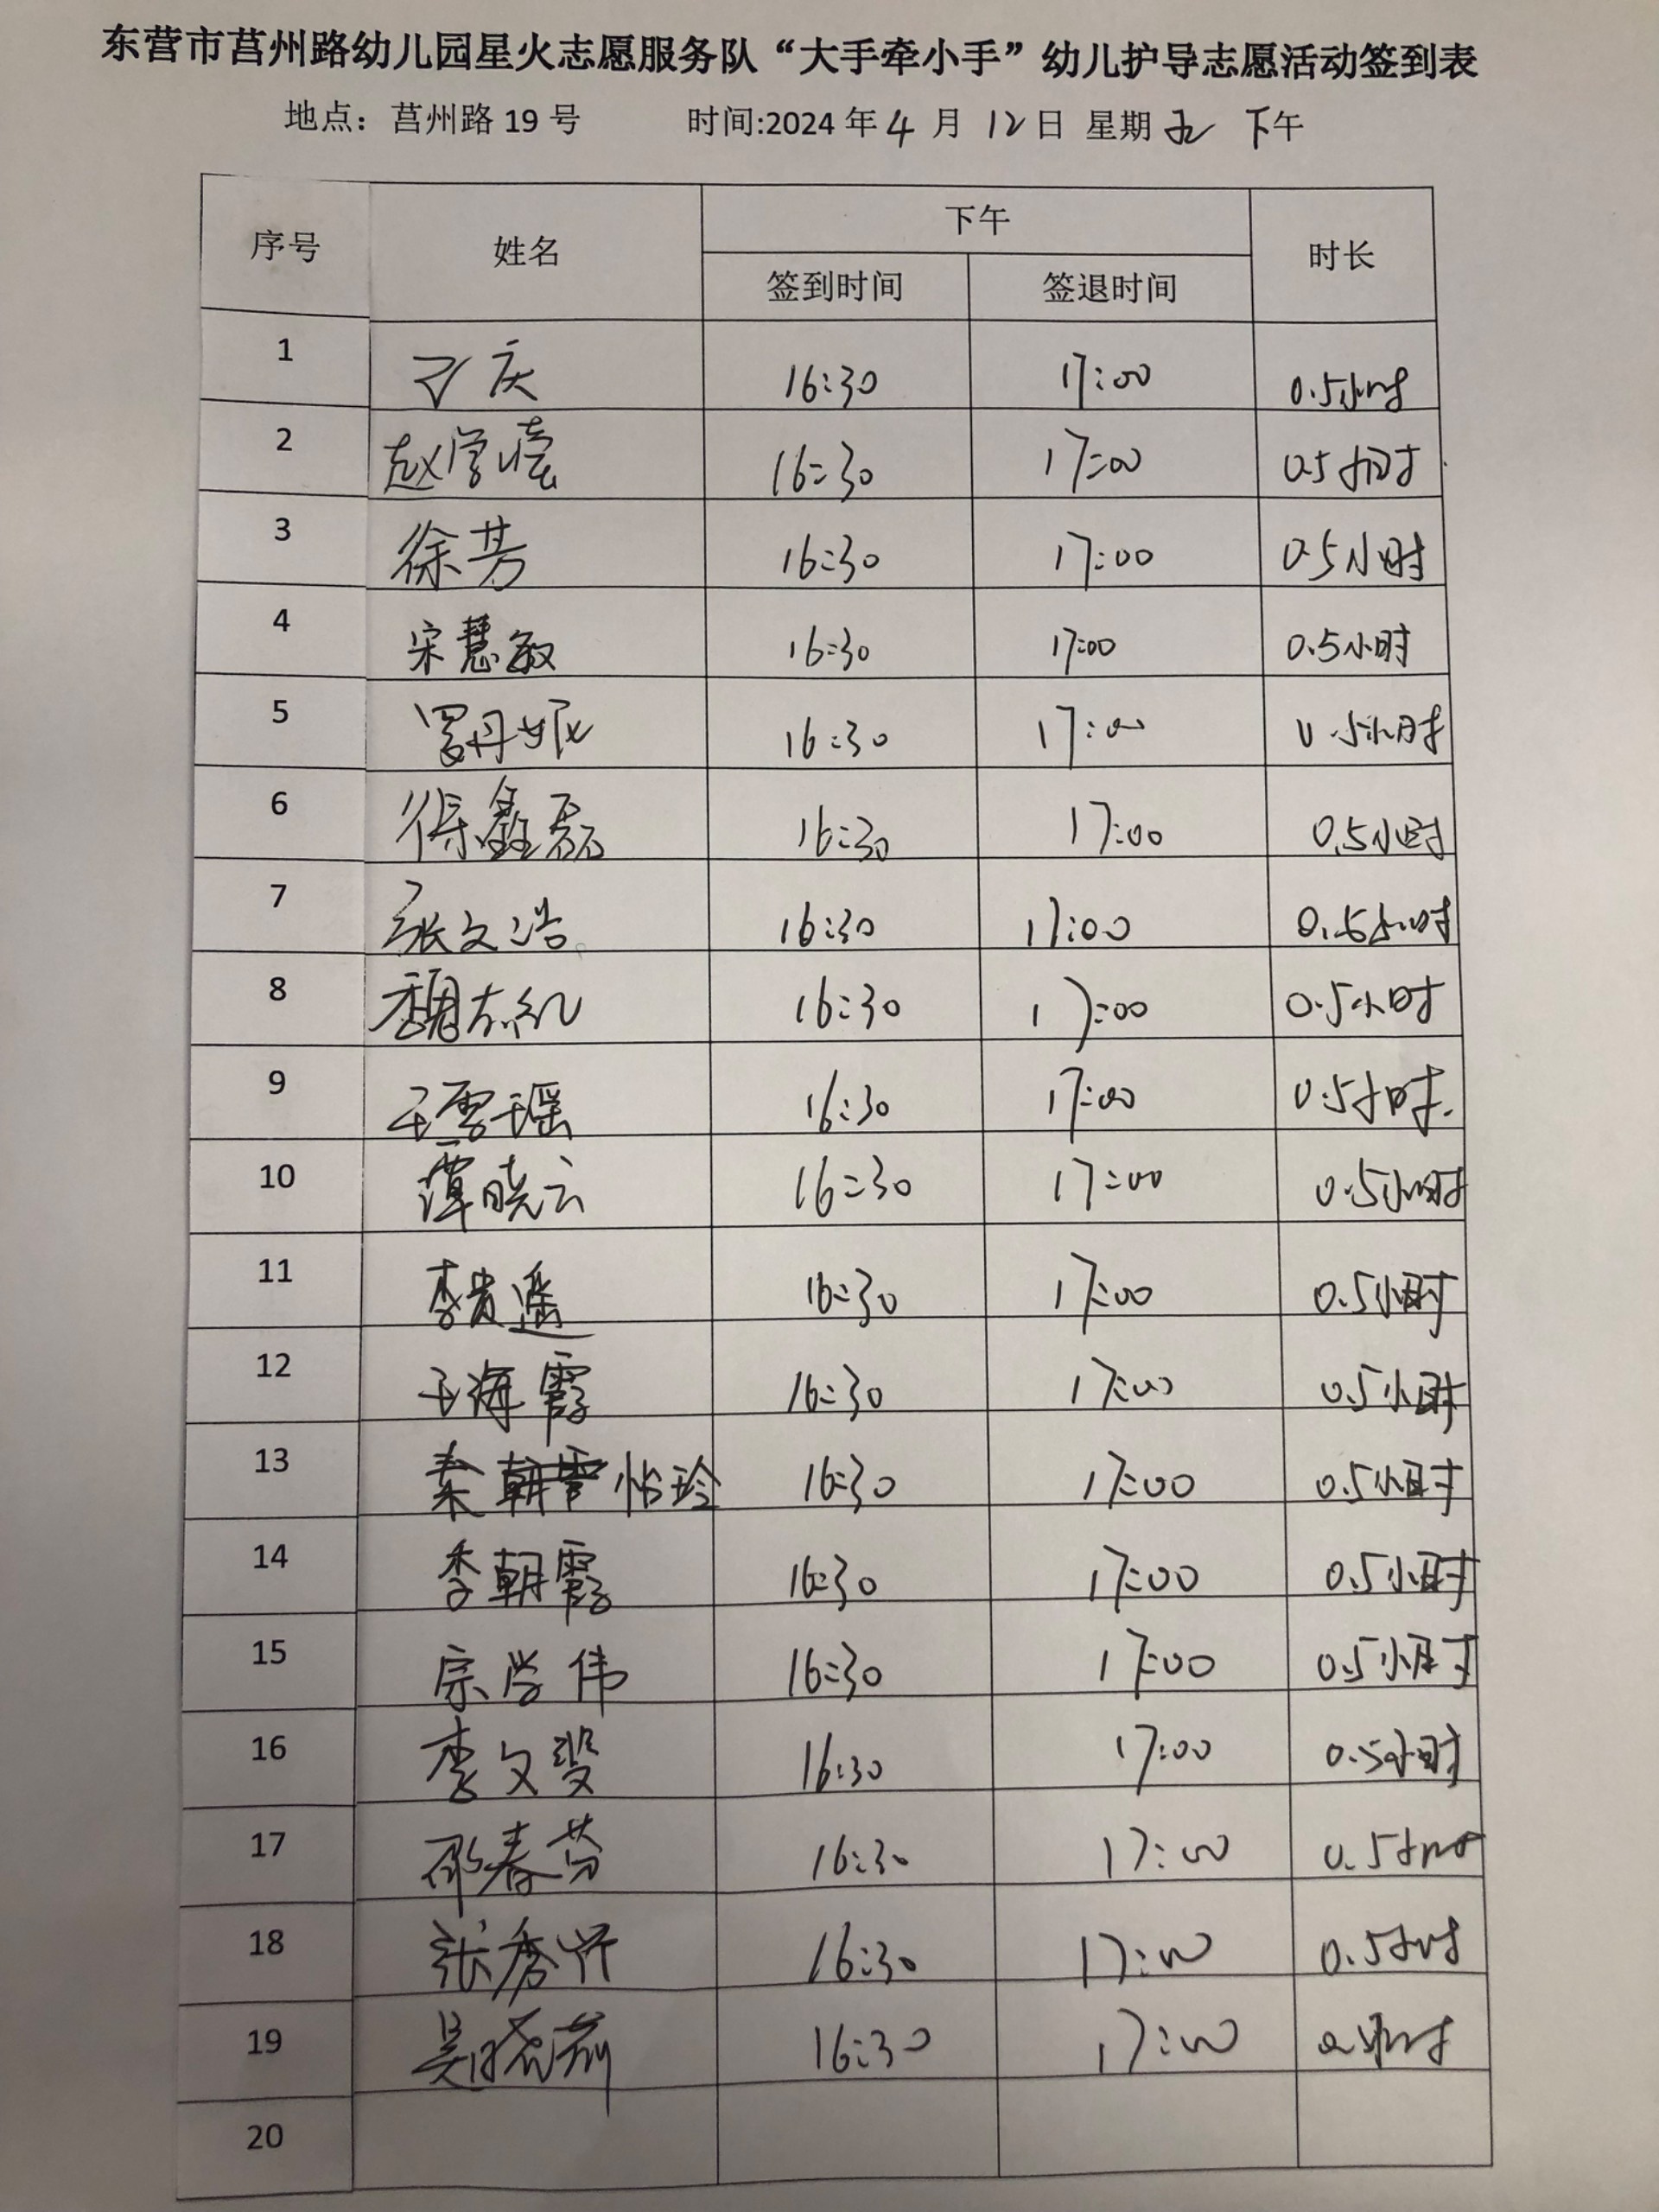 东营市莒州路幼儿园星火志愿服务队“大手牵小手”幼儿护导志愿活动签到表
地点：莒州路 19 号 时间:2024 年 4 月 12 日 星期 五 下午
序号 姓名 下午 时长
签到时间 签退时间
1 庆 16:30 17:00 0.5小时
2 赵学 16:30 17:00 0.5小时
3 徐芳 16:30 17:00 0.5小时
4 宋慧敏 16:30 17:00 0.5小时
5 罗丹妮 16:30 17:00 0.5小时
6 徐鑫磊 16:30 17:00 0.5小时
7 张文浩 16:30 17:00 0.5小时
8 魏志红 16:30 17:00 0.5小时
9 王雪瑶 16:30 17:00 0.5小时.
10 谭晓云 16:30 17:00 0.5小时
11 李贵遥 16:30 17:00 0.5小时
12 王海霞 16:30 17:00 0.5小时
13 秦 怡玲 16:30 17:00 0.5小时
14 李朝霞 16:30 17:00 0.5小时
15 宗学伟 16:30 17:00 0.5小时
16 李文斐 16:30 17:00 0.5小时
17 邵春芬 16:30 17:00 0.5小时
18 张秀 16:30 17:00 0.5小时
19 吴晓莉 16:30 17:00 0.5小时
20